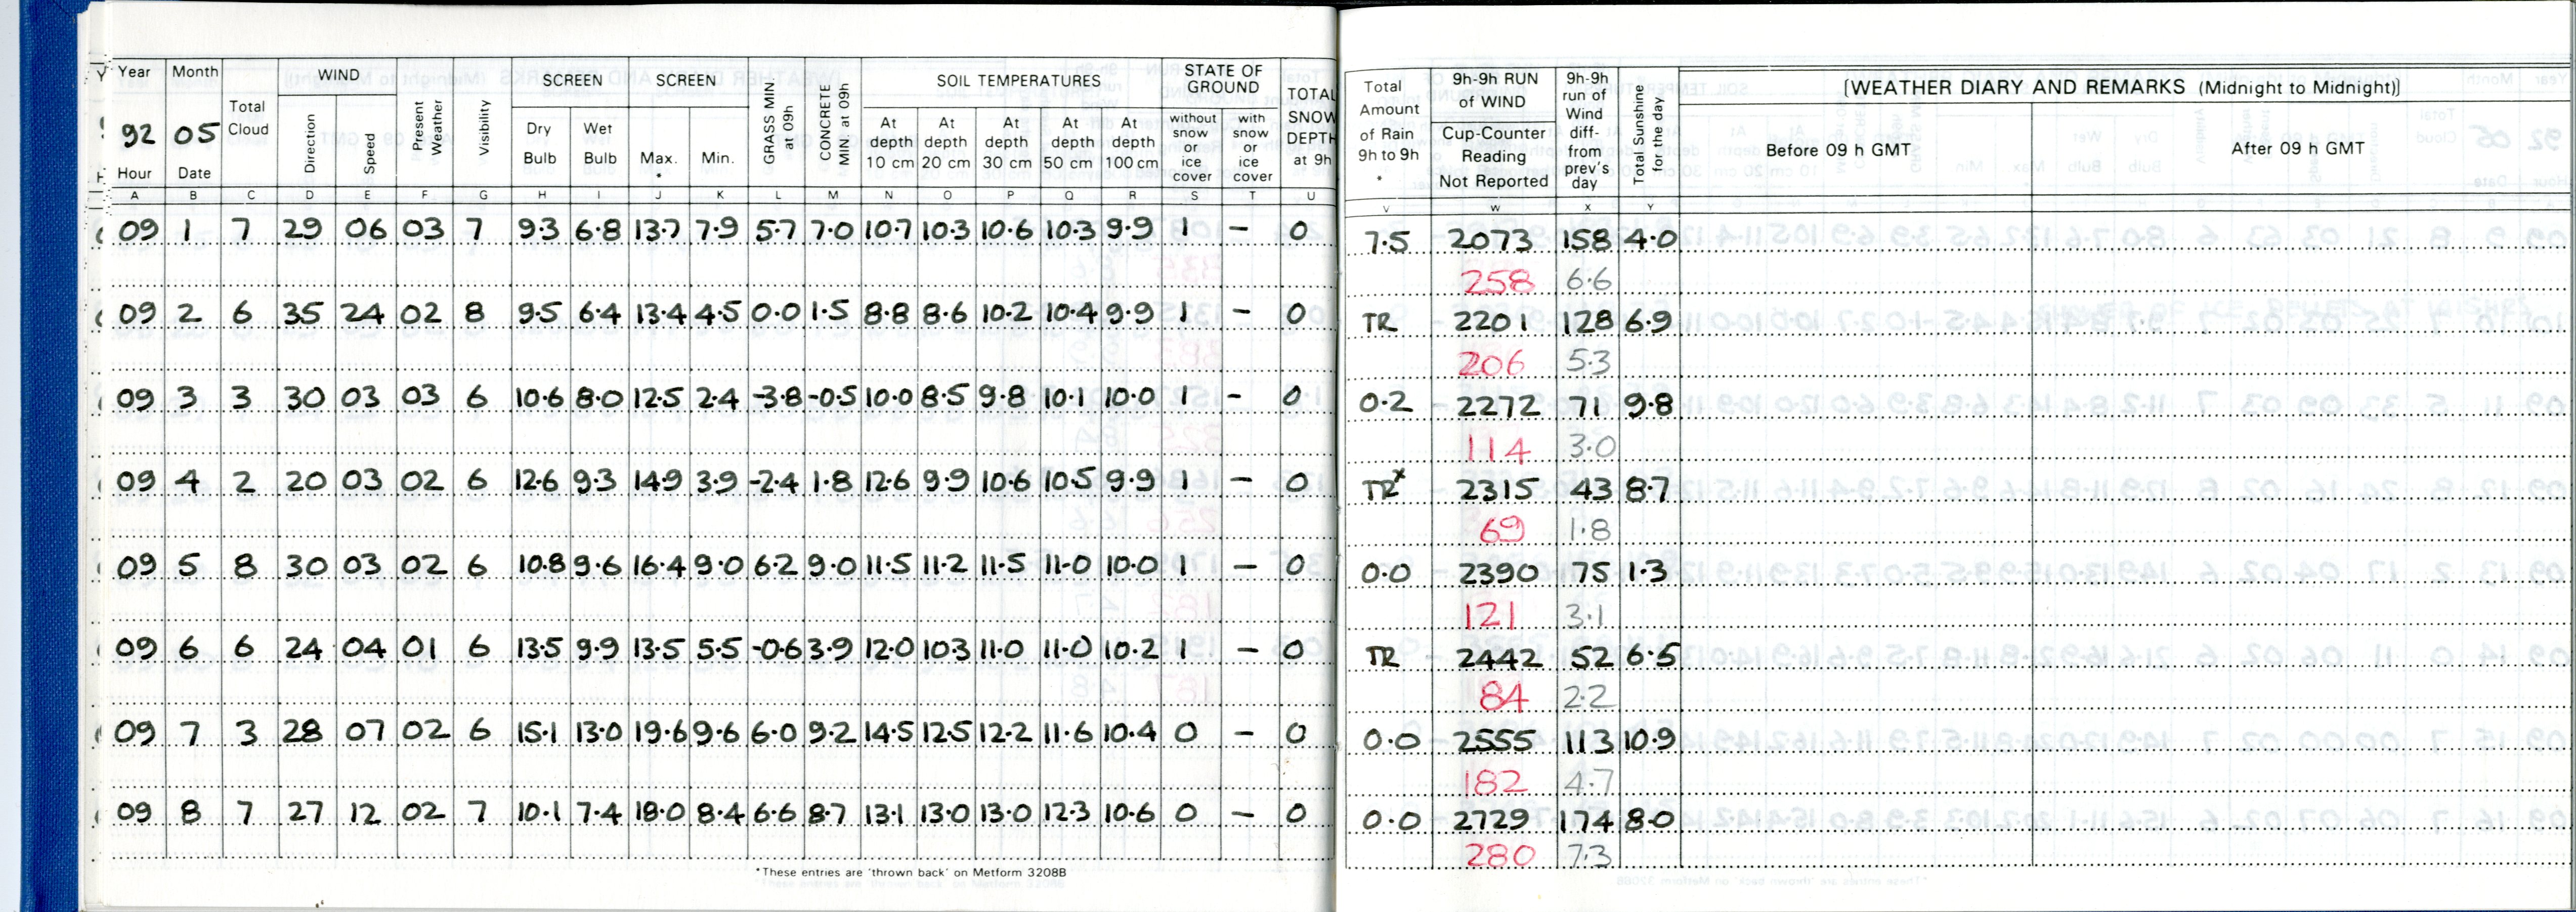 Year Month Total Cloud WIND Present Weather Visibility SCREEN SCREEN GRASS MIN at 09h CONCRETE MIN at 09h SOIL TEMPERATURES STATE OF GROUND TOTAL SNOW DEPTH at 9h
92 05 Direction Speed Dry Bulb Wet Bulb Max. * Min. At depth 10 cm At depth 20 cm At depth 30 cm At depth 50 cm At depth 100 cm without snow or ice cover with snow or ice cover
Hour Date
A B C D E F G H I J K L M N O P Q R S T U
09 1 7 29 06 03 7 9.3 6.8 13.7 7.9 5.7 7.0 10.7 10.3 10.6 10.3 9.9 1 – 0
09 2 6 35 24 02 8 9.5 6.4 13.4 4.5 0.0 1.5 8.8 8.6 10.2 10.4 9.9 1 – 0
09 3 3 30 03 03 6 10.6 8.0 12.5 2.4 -3.8 -0.5 10.0 8.5 9.8 10.1 10.0 1 – 0
09 4 2 20 03 02 6 12.6 9.3 14.9 3.9 -2.4 1.8 12.6 9.9 10.6 10.5 9.9 1 – 0
09 5 8 30 03 02 6 10.8 9.6 16.4 9.0 6.2 9.0 11.5 11.2 11.5 11.0 10.0 1 – 0
09 6 6 24 04 01 6 13.5 9.9 13.5 5.5 -0.6 3.9 12.0 10.3 11.0 11.0 10.2 1 – 0
09 7 3 28 07 02 6 15.1 13.0 19.6 9.6 6.0 9.2 14.5 12.5 12.2 11.6 10.4 0 – 0
09 8 7 27 12 02 7 10.1 7.4 18.0 8.4 6.6 8.7 13.1 13.0 13.0 12.3 10.6 0 – 0
*These entries are 'thrown back' on Metform 3208B
Total Amount of Rain 9h to 9h * 9h-9h RUN of WIND Cup-Counter Reading Not Reported 9h-9h run of Wind diff- from prev's day Total Sunshine for the day (WEATHER DIARY AND REMARKS (Midnight to Midnight))
Before 09 h GMT After 09 h GMT
V W X Y
7.5 2073 158 4.0
258 6.6
TR 2201 128 6.9
206 5.3
0.2 2272 71 9.8
114 3.0
TRx 2315 43 8.7
69 1.8
0.0 2390 75 1.3
121 3.1
TR 2442 52 6.5
84 2.2
0.0 2555 113 10.9
182 4.7
0.0 2729 174 8.0
280 7.3